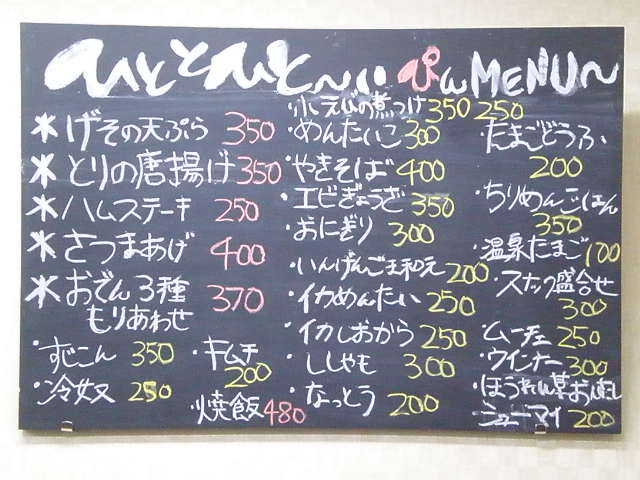 ひとひと〜い ぴんMENU〜
＊げその天ぷら 350
＊とりの唐揚げ 350
＊ハムステーキ 250
＊さつまあげ 400
＊おでん3種
もりあわせ 370
・すじこん 350
・冷奴 250
・キムチ
200
焼飯 480
・小えびの煮つけ 350
・めんたいこ 300
・やきそば 400
・エビぎょうざ 350
・おにぎり 300
・いんげんごま和え 200
・イカめんたい 250
・イカしおから 250
・ししゃも 300
・なっとう 200
250
・たまごどうふ
200
・ちりめんごはん
350
・温泉たまご 100
・スナック盛合せ
300
・ムーチェ 250
・ウインナー 300
・ほうれん草おひたし
・シューマイ 200